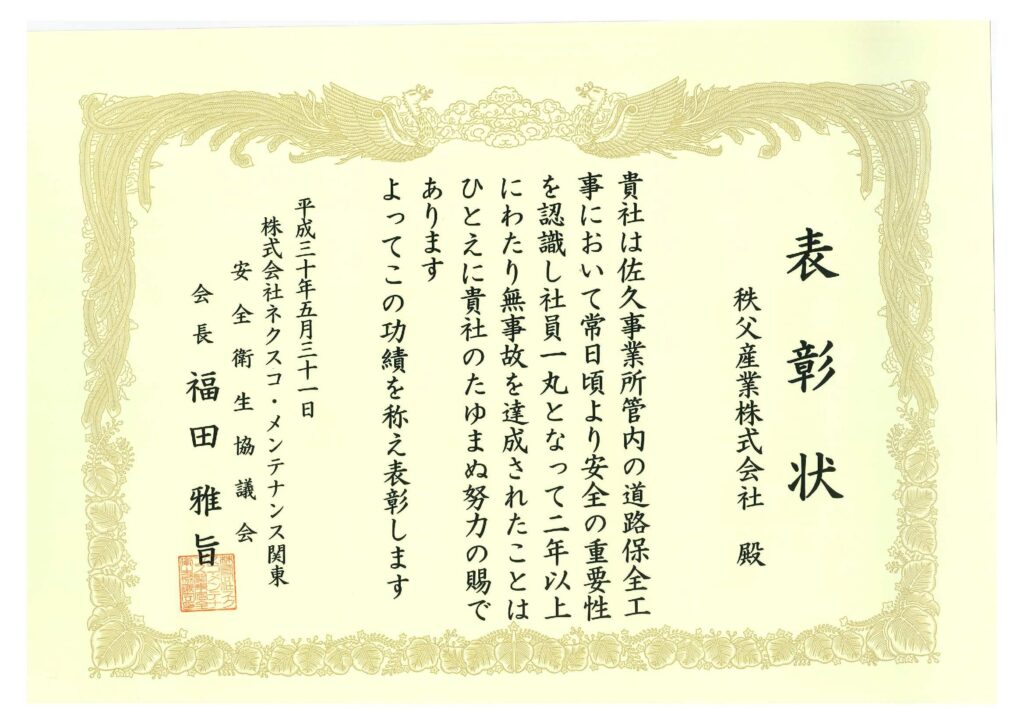 表彰状
秩父産業株式会社 殿
貴社は佐久事業所管内の道路保全工
事において常日頃より安全の重要性
を認識し社員一丸となって二年以上
にわたり無事故を達成されたことは
ひとえに貴社のたゆまぬ努力の賜で
あります
よってこの功績を称え表彰します
平成三十年五月三十一日
株式会社ネクスコ・メンテナンス関東
安全衛生協議会
会長 福田雅旨